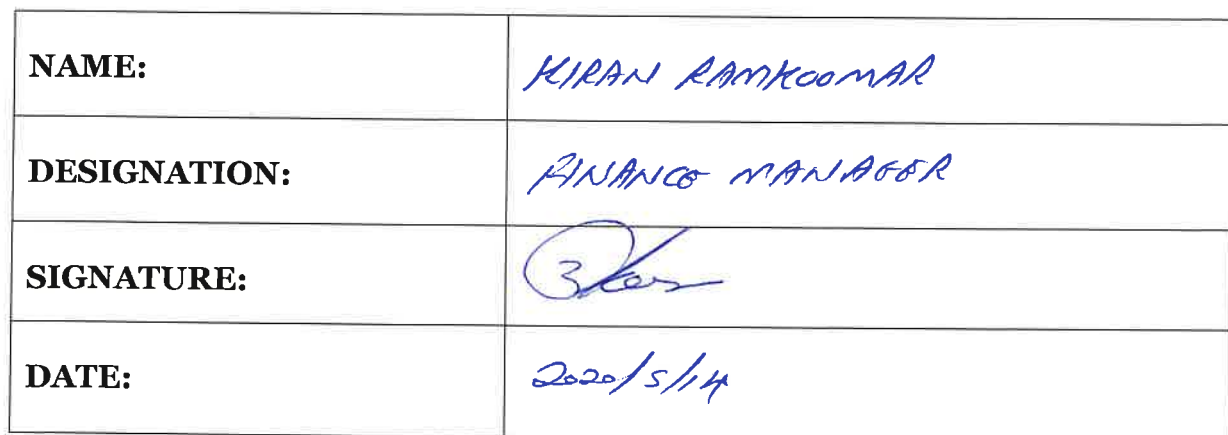 NAME: KIRAN RAMKOOMAR
DESIGNATION: FINANCE MANAGER
SIGNATURE:
DATE: 2020/5/14